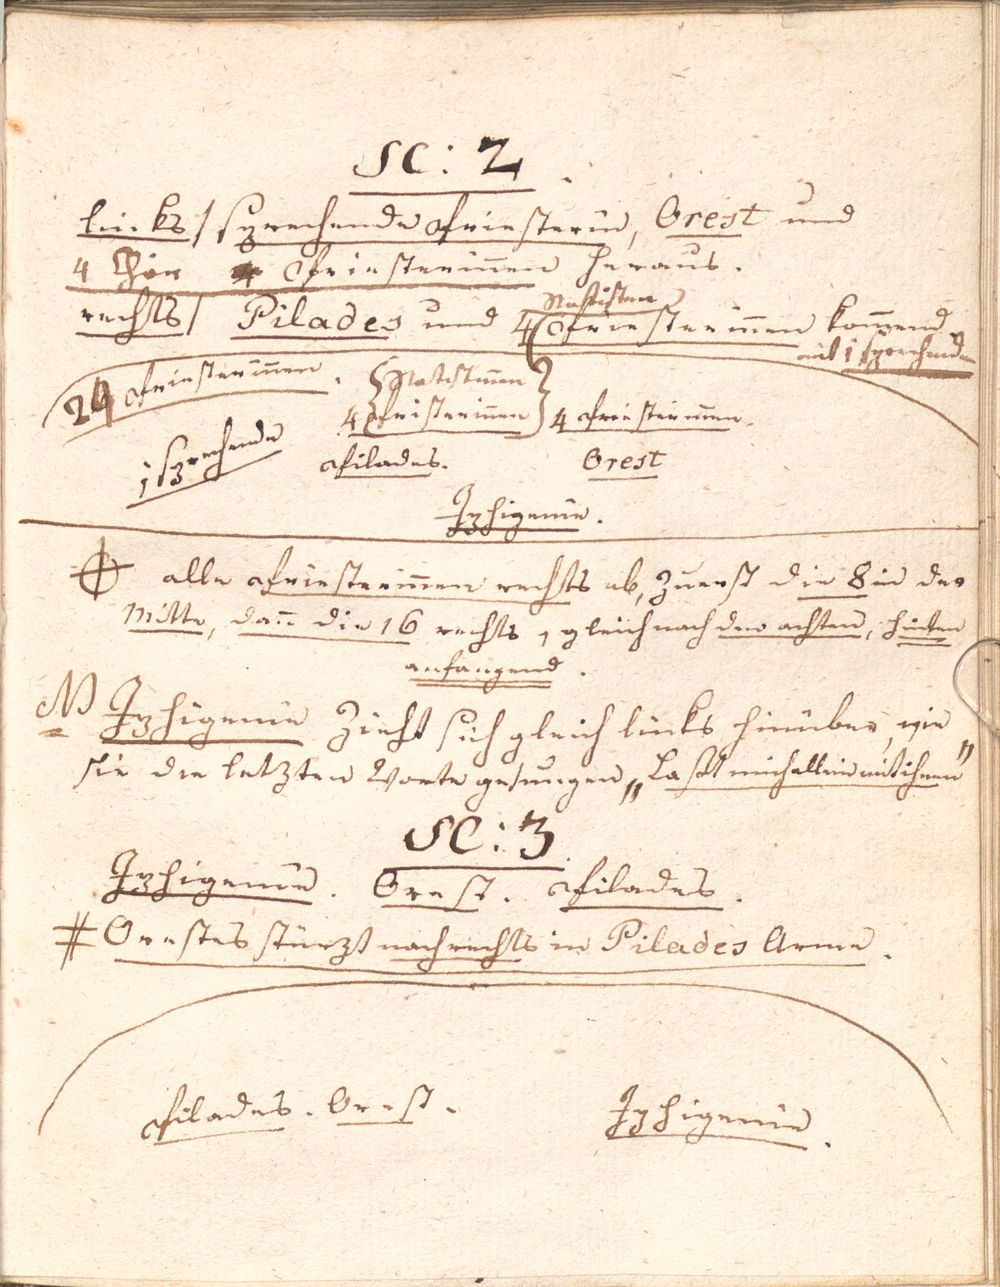 SC: 2.
links/ sprechende Priesterin, Orest und
4 Chor Priesterinnen heraus.
rechts/ Pilades und 4 Priesterinnen kom̄end
Statisten
mit 1 sprechenden
24 Priesterinnen.
4 {Statistinnen
Pristerinnen} 4 Priesterinnen.
1 sprechende
Pilades. Orest
Iphigenie.
alle Priesterinnen rechts ab, zuerst die 8 in der
Mitte, dan̄ die 16 rechts, gleich nach den achten, hinten
anfangend.
Iphigenie zieht sich gleich links hinüber, wie
sie die letzten Worte gesungen „Laßt mich allein mit ihnen"
SC: 3
Iphigenie. Orest. Pilades.
# Orestes stürzt nach rechts in Pilades Arme.
Pilades. Orest.
Iphigenie.